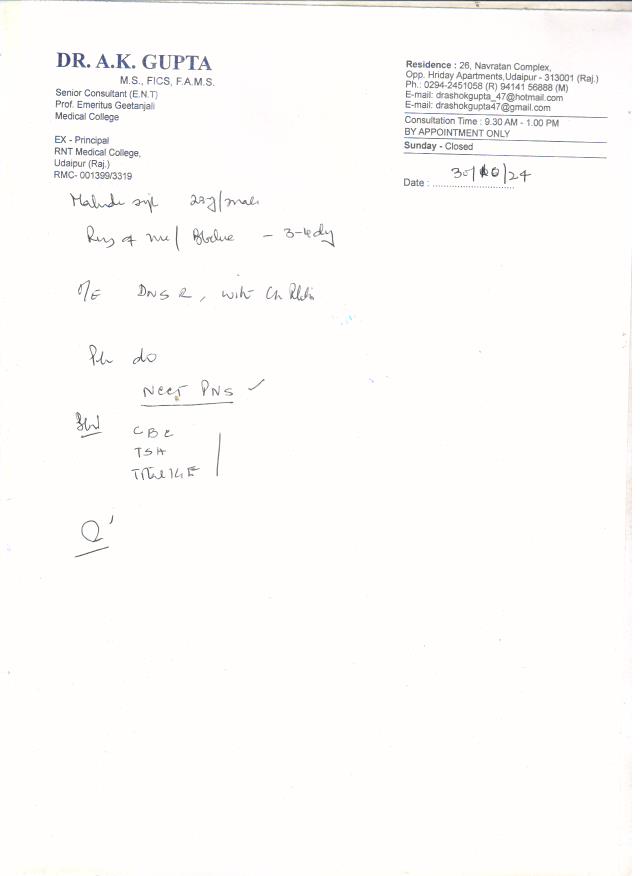 DR. A.K. GUPTA
M.S., FICS, F.A.M.S.
Senior Consultant (E.N.T)
Prof. Emeritus Geetanjali
Medical College
EX - Principal
RNT Medical College,
Udaipur (Raj.)
RMC- 001399/3319
Residence : 26, Navratan Complex,
Opp. Hriday Apartments,Udaipur - 313001 (Raj.)
Ph.: 0294-2451058 (R) 94141 56888 (M)
E-mail: drashokgupta_47@hotmail.com
E-mail: drashokgupta47@gmail.com
Consultation Time : 9.30 AM - 1.00 PM
BY APPOINTMENT ONLY
Sunday - Closed
Date : 30/10/24
O/E DNS R, with
do
NCCT PNS ✓
CBC
TSH